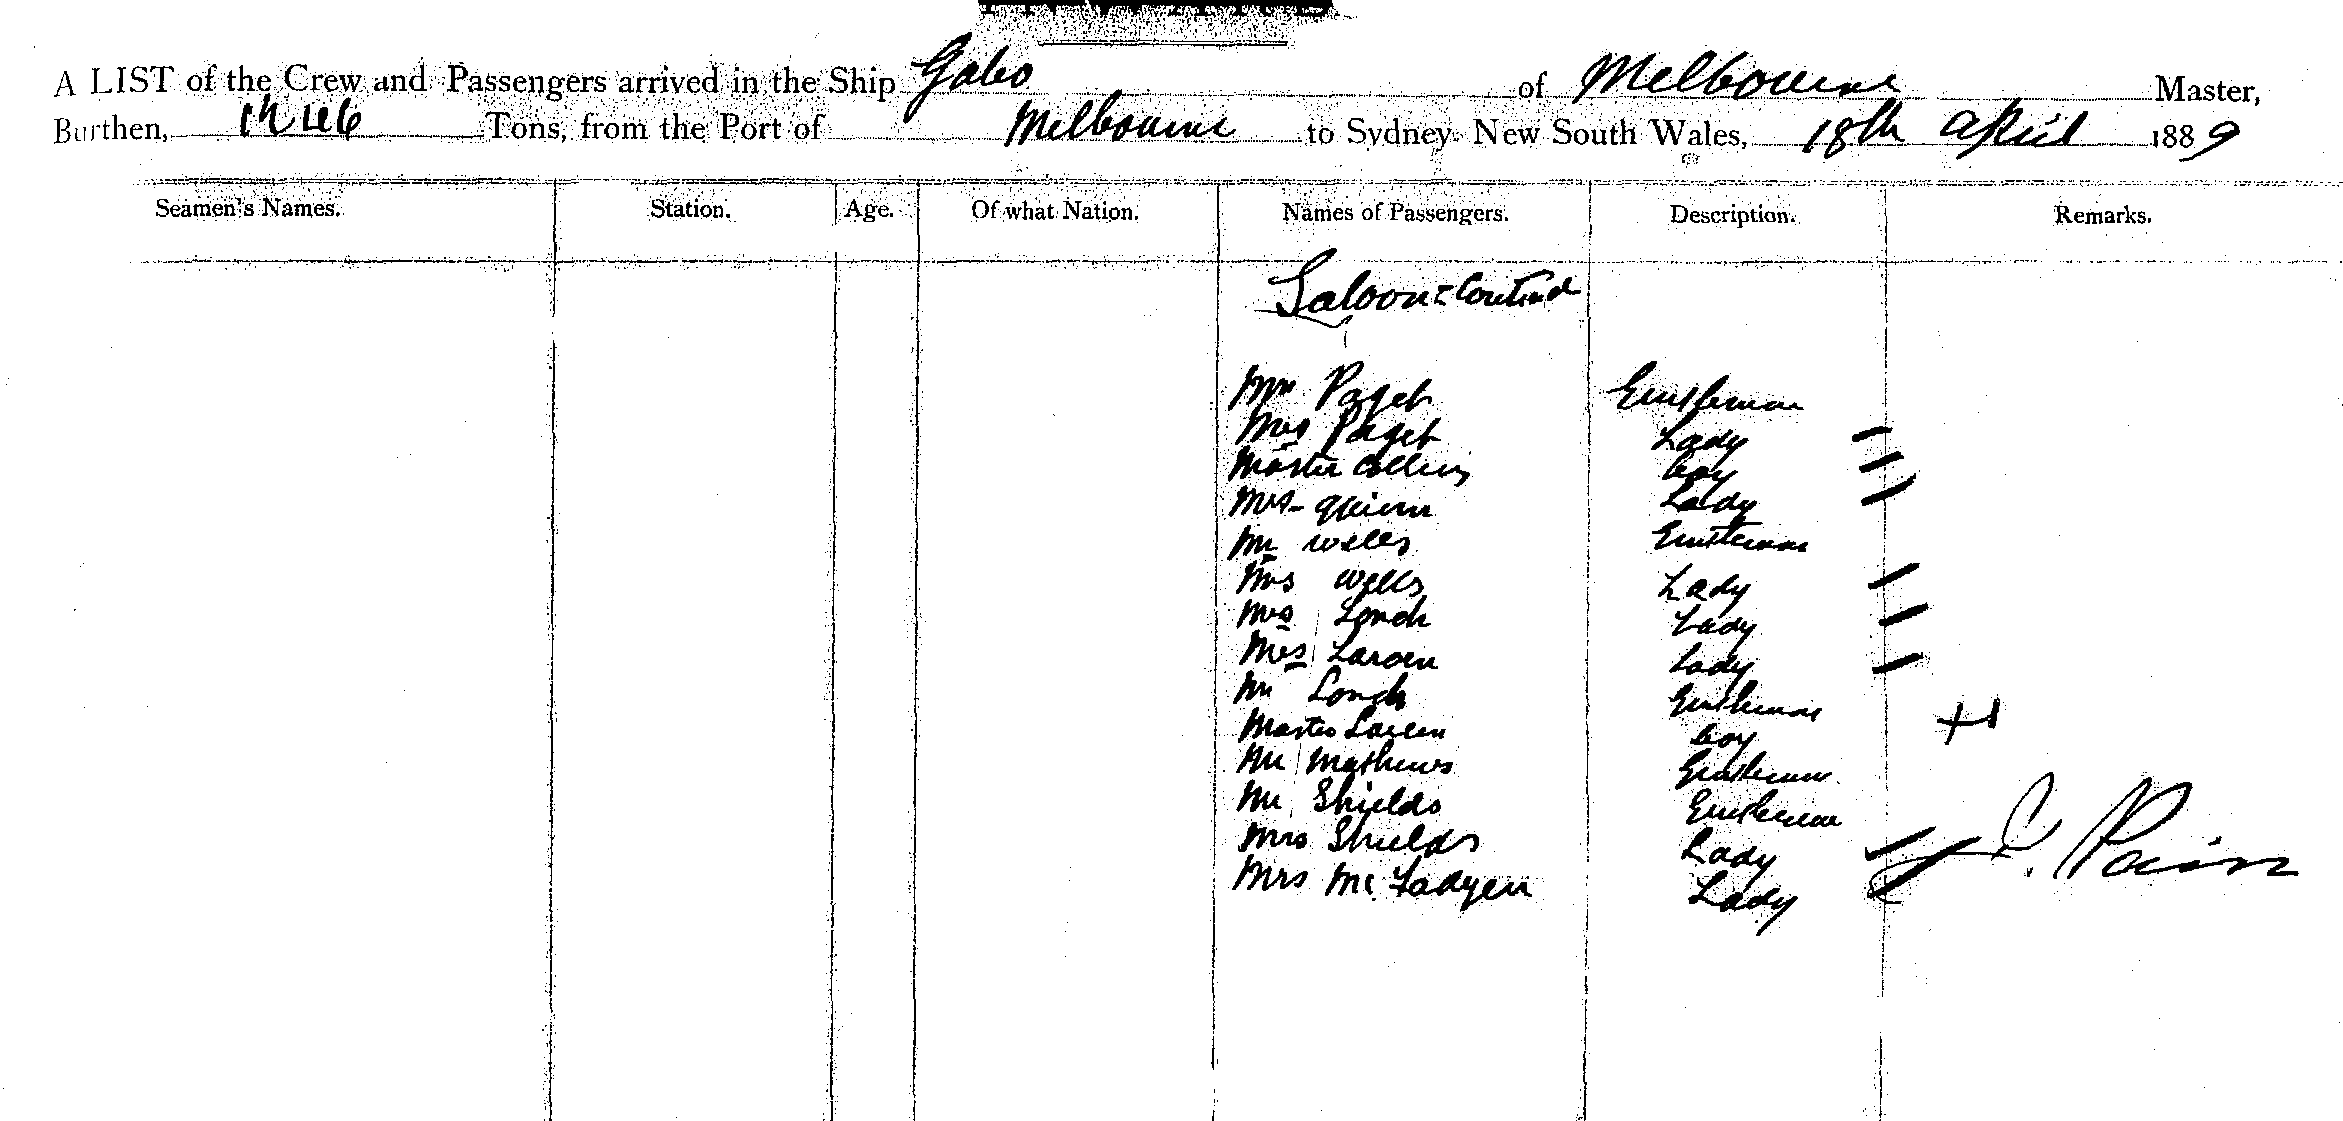 A LIST of the Crew and Passengers arrived in the Ship Gabo of Melbourne Master,
Burthen, Tons, from the Port of Melbourne to Sydney New South Wales, 18th April 1889
Seamen's Names. Station. Age. Of what Nation. Names of Passengers. Description. Remarks.
Saloon - Contind
Mr Paget Gentleman
Mrs Paget Lady
Master Collins boy
Mrs - Quinn Lady
Mr Wells Gentleman
Mrs Wells Lady
Mrs Lady
Mrs Larsen Lady
Mr Gentleman
Master Larsen boy
Mr Mathews Gentleman
Mr Shields Gentleman
Mrs Shields Lady
Mrs Mc Fadyen Lady